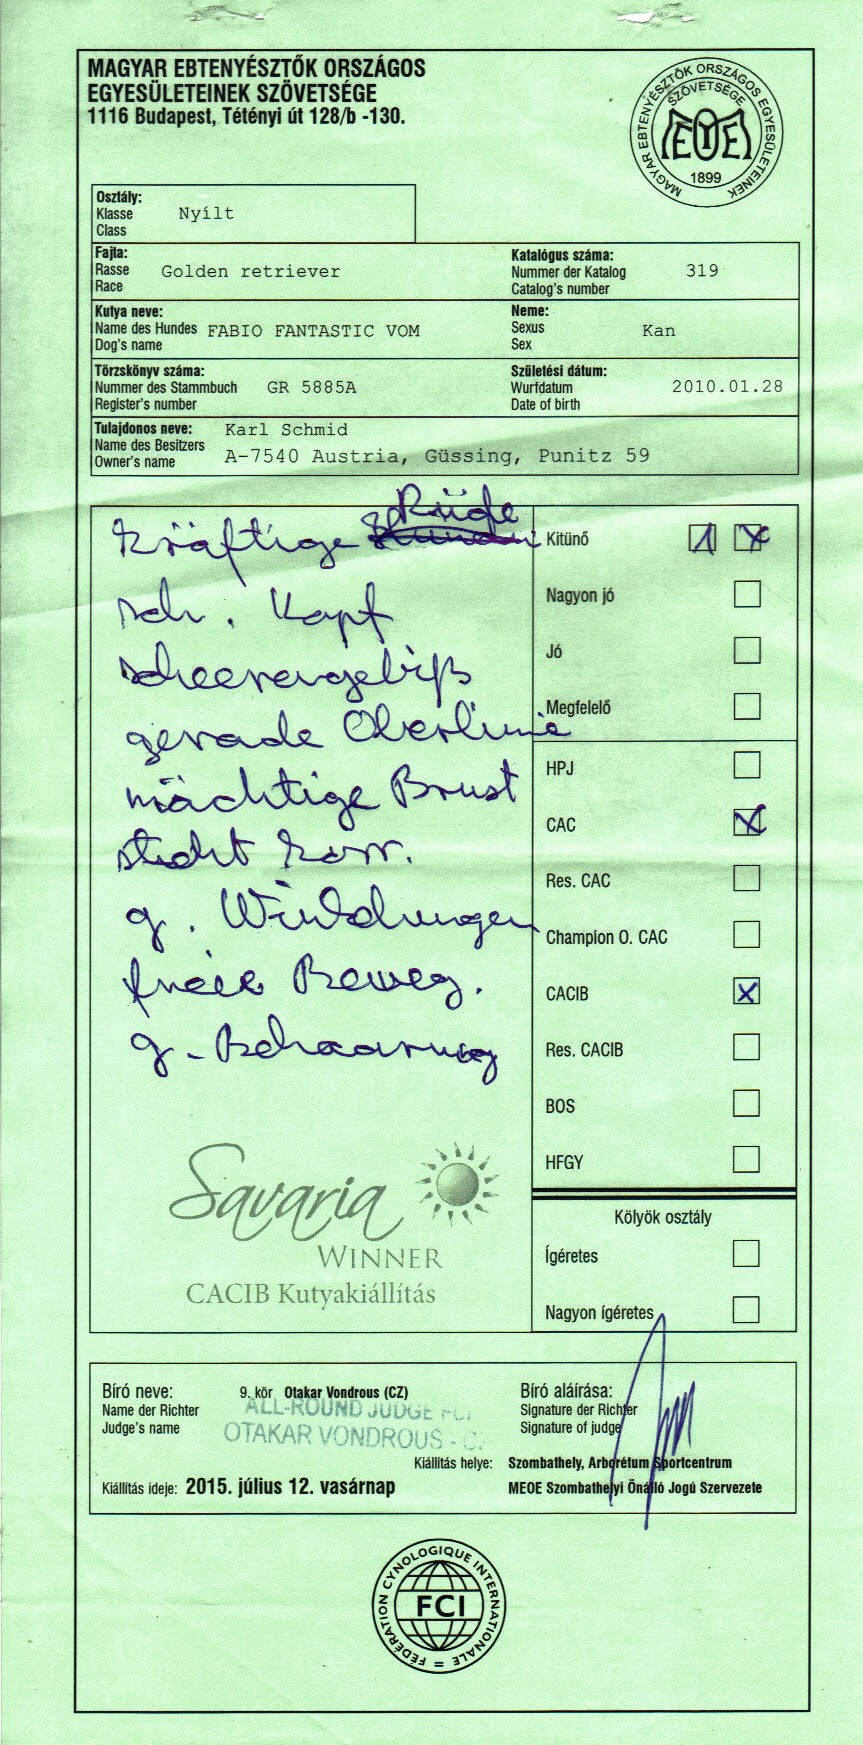 MAGYAR EBTENYÉSZTŐK ORSZÁGOS
EGYESÜLETEINEK SZÖVETSÉGE
1116 Budapest, Tétényi út 128/b -130.
MAGYAR EBTENYÉSZTŐK ORSZÁGOS EGYESÜLETEINEK
SZÖVETSÉGE
MEOE
1899
Osztály:
Klasse Nyílt
Class
Fajta:
Rasse Golden retriever
Race
Katalógus száma:
Nummer der Katalog 319
Catalog's number
Kutya neve:
Name des Hundes FABIO FANTASTIC VOM
Dog's name
Neme:
Sexus Kan
Sex
Törzskönyv száma:
Nummer des Stammbuch GR 5885A
Register's number
Születési dátum:
Wurfdatum 2010.01.28
Date of birth
Tulajdonos neve: Karl Schmid
Name des Besitzers
Owner's name A-7540 Austria, Güssing, Punitz 59
kräftige Rüde
sch. Kopf
scheerengebiß
gerade Oberlinie
mächtige Brust
steht korr.
g. Winklungen
freie Beweg.
g. Behaarung
Kitünő 1 X
Nagyon jó
Jó
Megfelelő
HPJ
CAC X
Res. CAC
Champion O. CAC
CACIB X
Res. CACIB
BOS
HFGY
Kölyök osztály
Ígéretes
Nagyon ígéretes
Savaria
WINNER
CACIB Kutyakiállítás
Bíró neve: 9. kör Otakar Vondrous (CZ)
Name der Richter
Judge's name
ALL-ROUND JUDGE FCI
OTAKAR VONDROUS - C
Bíró aláírása:
Signature der Richter
Signature of judge
Kiállítás helye: Szombathely, Arborétum Sportcentrum
Kiállítás ideje: 2015. július 12. vasárnap
MEOE Szombathelyi Önálló Jogú Szervezete
FÉDÉRATION CYNOLOGIQUE INTERNATIONALE
FCI